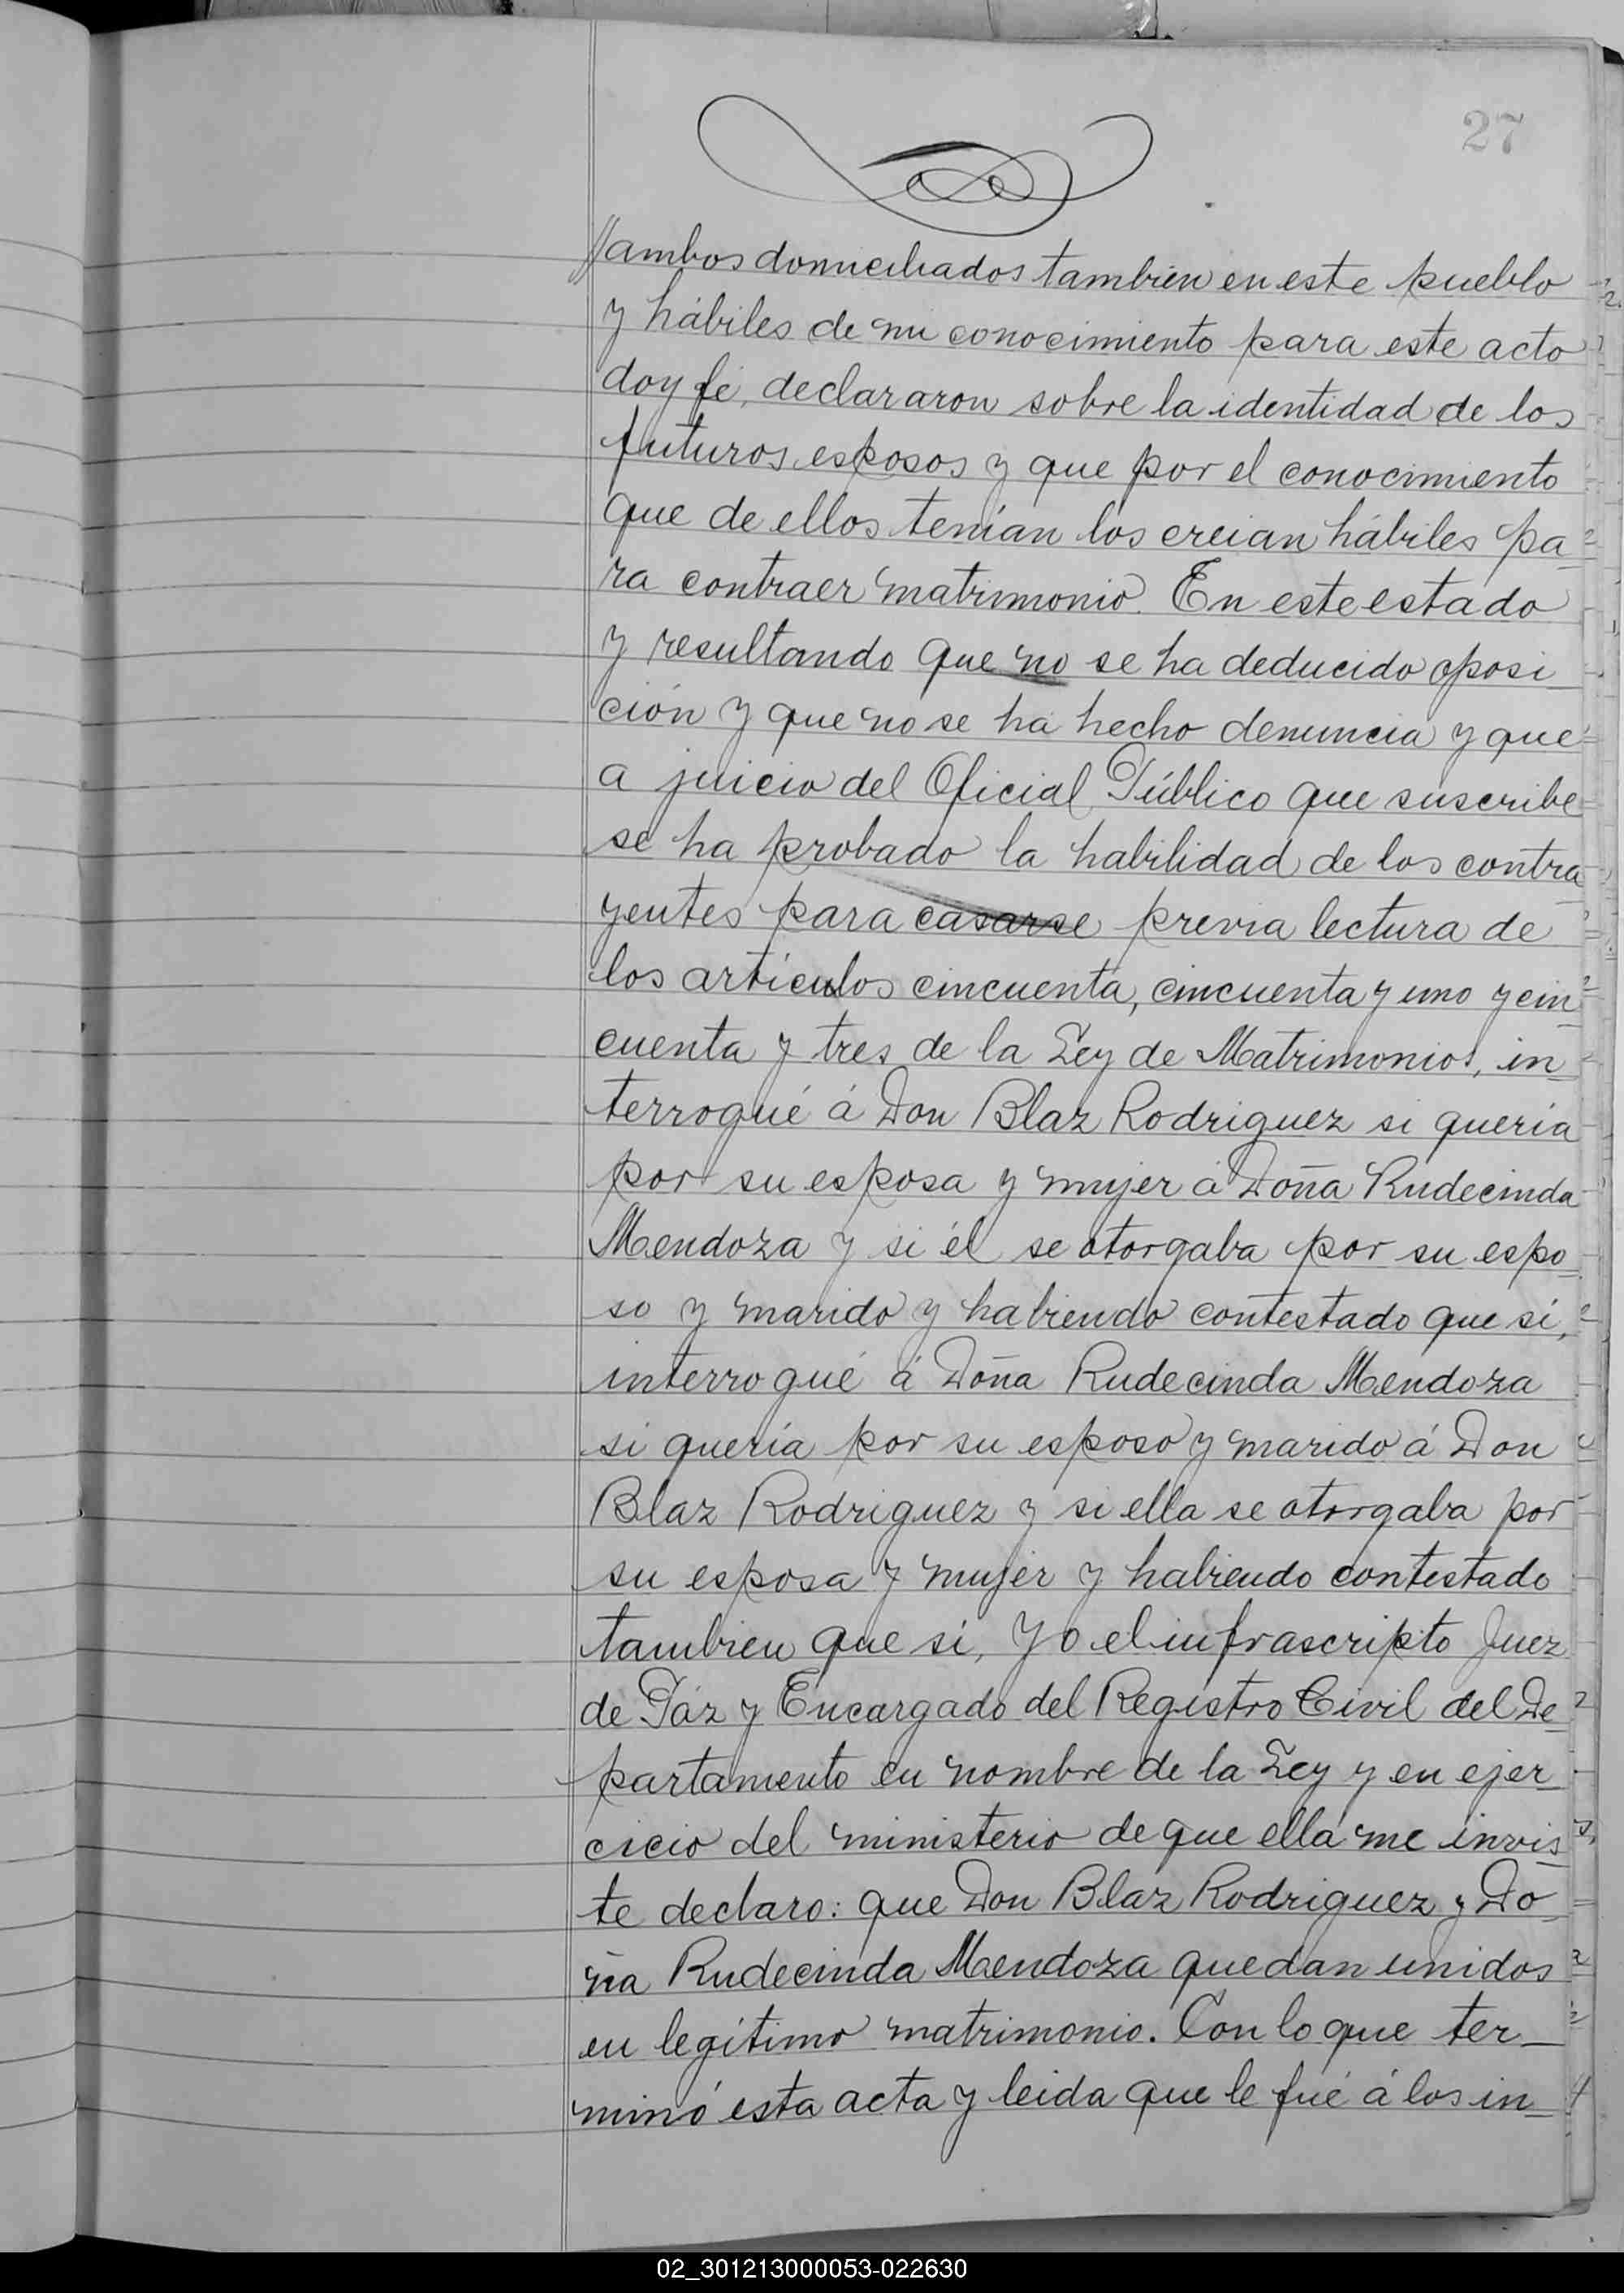 27
//ambos domiciliados tambien en este pueblo
y hábiles de mi conocimiento para este acto
doy fé, declararon sobre la identidad de los
futuros esposos y que por el conocimiento
que de ellos tenían los creian hábiles pa
ra contraer matrimonio. En este estado
y resultando que no se ha deducido oposi
ción y que no se há hecho denuncia y que
a juicio del Oficial Público que suscribe
se ha probado la habilidad de los contra
yentes para casarse previa lectura de
los artículos cincuenta, cincuenta y uno y cin
cuenta y tres de la Ley de Matrimonios, in
terrogué á Don Blaz Rodriguez si quería
por su esposa y mujer á Doña Rudecinda
Mendoza y si él se otorgaba por su espo
so y marido y habiendo contestado que sí,
interrogué á Doña Rudecinda Mendoza
si quería por su esposo y marido á Don
Blaz Rodriguez y si ella se otorgaba por
su esposa y mujer y habiendo contestado
tambien que sí, Yo el infrascripto Juez
de Páz y Encargado del Registro Civil del De
partamento en nombre de la Ley y en ejer
cicio del ministerio de que ella me invis
te declaro: que Don Blaz Rodriguez y Do
ña Rudecinda Mendoza quedan unidos
en legítimo matrimonio. Con lo que ter
minó esta acta y leida que le fué á los in
02_301213000053-022630